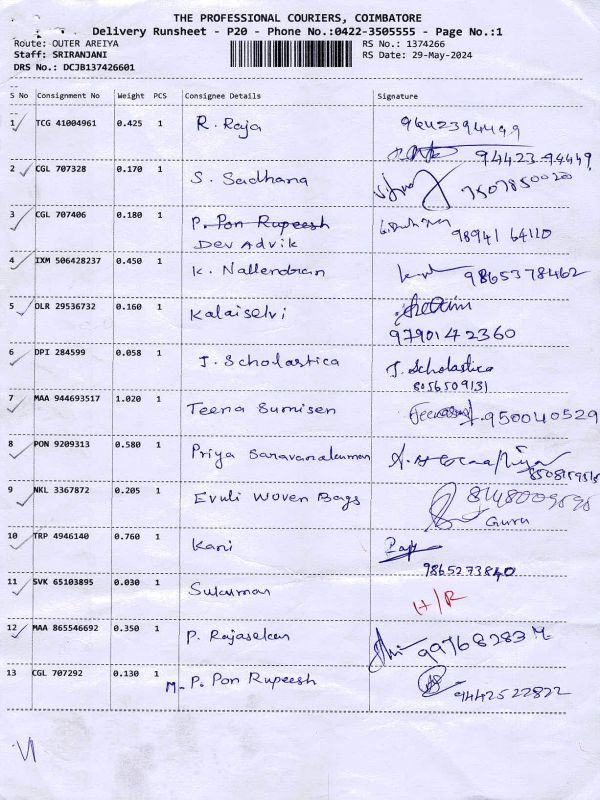 THE PROFESSIONAL COURIERS, COIMBATORE
Delivery Runsheet - P20 - Phone No.:0422-3505555 - Page No.:1
Route: OUTER AREIYA RS No.: 1374266
Staff: SRIRANJANI RS Date: 29-May-2024
DRS No.: DCJB137426601
S No Consignment No Weight PCS Consignee Details Signature
1 TCG 41004961 0.425 1 R. Raja 9642394499
94423-94449
2 CGL 707328 0.170 1 S. Sadhana 7507850020
3 CGL 707406 0.180 1 P. Pon Rupeesh
Dev Advik 98941 64110
4 IXM 506428237 0.450 1 K. Nallendran 9865378462
5 DLR 29536732 0.160 1 Kalaiselvi
9790142360
6 DPI 284599 0.058 1 J. Scholastica J. Scholastica
8056509131
7 MAA 944693517 1.020 1 Teena Sumisen 950040529
8 PON 9209313 0.580 1 Priya Saravanakumar
9 NKL 3367872 0.205 1 Evuli Woven Bags
Guru
10 TRP 4946140 0.760 1 Kani
9865273840
11 SVK 65103895 0.030 1 Sukumar H/R
12 MAA 865546692 0.350 1 P. Rajasekar
13 CGL 707292 0.130 1 M- P. Pon Rupeesh 9442522822